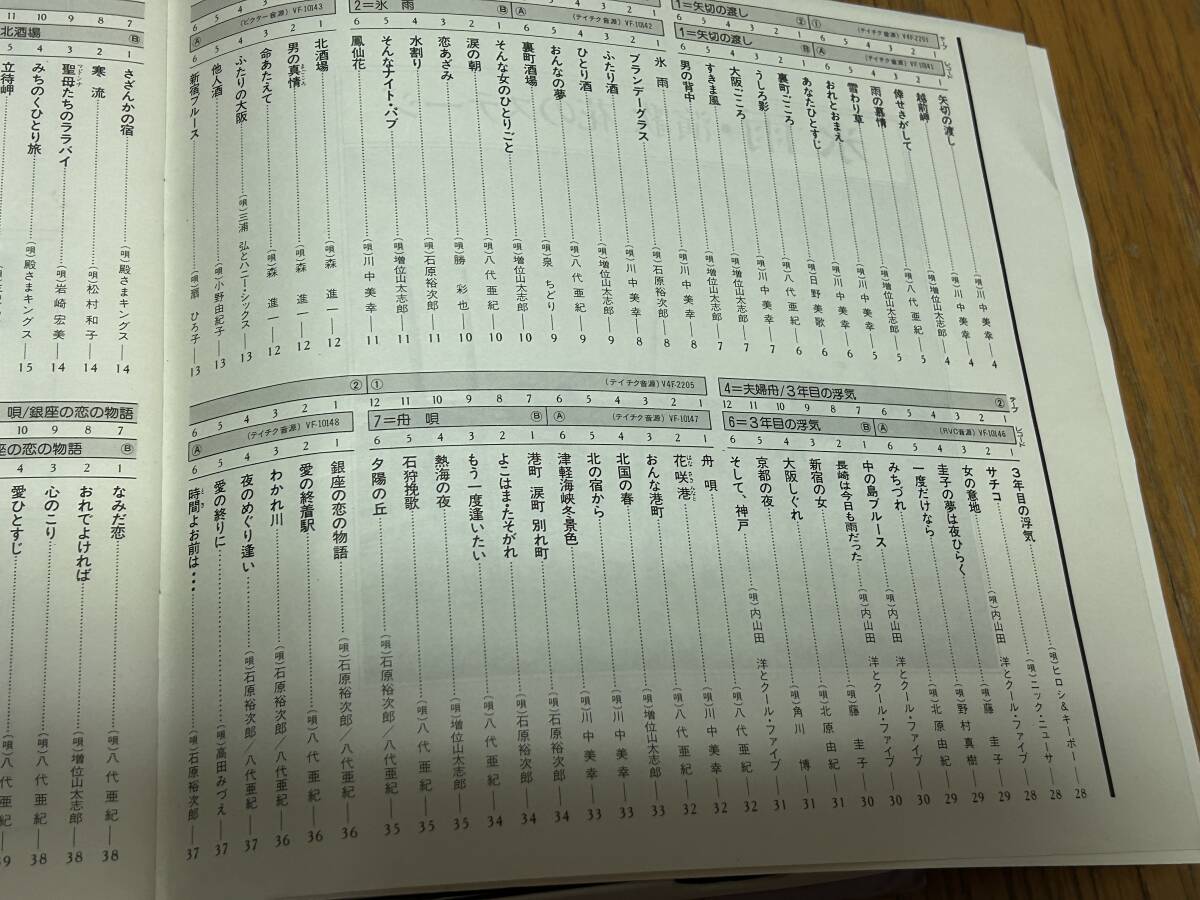 1=矢切の渡し ② ① (テイチク音源) V4F-2201 テープ
1=矢切の渡し Ⓑ Ⓐ (テイチク音源) VF-10141 レコード
1 矢切の渡し (唄)川中美幸 4
2 越前岬 (唄)川中美幸 4
3 倖せさがして (唄)増位山太志郎 4
4 雨の慕情 (唄)八代亜紀 5
5 雪わり草 (唄)増位山太志郎 5
6 おれとおまえ (唄)川中美幸 5
1 あなたひとすじ (唄)川中美幸 6
2 裏町ごころ (唄)日野美歌 6
3 うしろ影 (唄)八代亜紀 6
4 大阪ごころ (唄)川中美幸 7
5 すきま風 (唄)増位山太志郎 7
6 男の背中 (唄)増位山太志郎 7
2=氷雨 Ⓑ Ⓐ (テイチク音源) VF-10142
1 氷雨 (唄)川中美幸 8
2 ブランデーグラス (唄)石原裕次郎 8
3 ふたり酒 (唄)川中美幸 8
4 ひとり酒 (唄)増位山太志郎 9
5 おんなの夢 (唄)八代亜紀 9
6 裏町酒場 (唄)泉ちどり 9
1 そんな女のひとりごと (唄)増位山太志郎 10
2 涙の朝 (唄)八代亜紀 10
3 恋あざみ (唄)勝彩也 10
4 水割り (唄)石原裕次郎 11
5 そんなナイト・パブ (唄)増位山太志郎 11
6 鳳仙花 (唄)川中美幸 11
北酒場 Ⓑ Ⓐ (ビクター音源) VF-10143
1 北酒場 (唄)森進一 12
2 男の真情 まごころ (唄)森進一 12
3 命あたえて (唄)森進一 12
4 ふたりの大阪 (唄)三浦弘とハニー・シックス 13
5 他人酒 (唄)小野由紀子 13
6 新宿ブルース (唄)扇ひろ子 13
1 さざんかの宿 (唄)殿さまキングス 14
2 寒流 (唄)松村和子 14
3 聖母たちのララバイ マドンナ (唄)岩崎宏美 14
4 みちのくひとり旅 (唄)殿さまキングス 15
5 立待岬
4=夫婦舟/3年目の浮気 ② テープ
6=3年目の浮気 Ⓑ Ⓐ (RVC音源) VF-10146 レコード
1 3年目の浮気 (唄)ヒロシ&キーボー 28
2 サチコ (唄)ニック・ニューサ 28
3 女の意地 (唄)内山田洋とクール・ファイブ 28
4 圭子の夢は夜ひらく (唄)藤圭子 29
5 一度だけなら (唄)野村真樹 29
6 みちづれ (唄)北原由紀 29
1 中の島ブルース (唄)内山田洋とクール・ファイブ 30
2 長崎は今日も雨だった (唄)内山田洋とクール・ファイブ 30
3 新宿の女 (唄)藤圭子 30
4 大阪しぐれ (唄)北原由紀 31
5 京都の夜 (唄)角川博 31
6 そして、神戸 (唄)内山田洋とクール・ファイブ 31
② ① (テイチク音源) V4F-2205
7=舟唄 Ⓑ Ⓐ (テイチク音源) VF-10147
1 舟唄 (唄)八代亜紀 32
2 花咲港 (唄)川中美幸 32
3 おんな港町 (唄)八代亜紀 32
4 北国の春 (唄)増位山太志郎 33
5 北の宿から (唄)川中美幸 33
6 津軽海峡冬景色 (唄)川中美幸 33
1 港町 涙町 別れ町 (唄)石原裕次郎 34
2 よこはま・たそがれ (唄)石原裕次郎 34
3 もう一度逢いたい (唄)八代亜紀 34
4 熱海の夜 (唄)増位山太志郎 35
5 石狩挽歌 (唄)八代亜紀 35
6 夕陽の丘 (唄)石原裕次郎/八代亜紀 35
唄/銀座の恋の物語
座の恋の物語 Ⓑ Ⓐ (テイチク音源) VF-10148
1 銀座の恋の物語 (唄)石原裕次郎/八代亜紀 36
2 愛の終着駅 (唄)八代亜紀 36
3 わかれ川 (唄)石原裕次郎/八代亜紀 36
4 夜のめぐり逢い (唄)石原裕次郎/八代亜紀 37
5 愛の終りに (唄)高田みづえ 37
6 時間よお前は… とき (唄)石原裕次郎 37
1 なみだ恋 (唄)八代亜紀 38
2 おれでよければ (唄)増位山太志郎 38
3 心のこり (唄)八代亜紀 38
4 愛ひとすじ (唄)八代亜紀 39